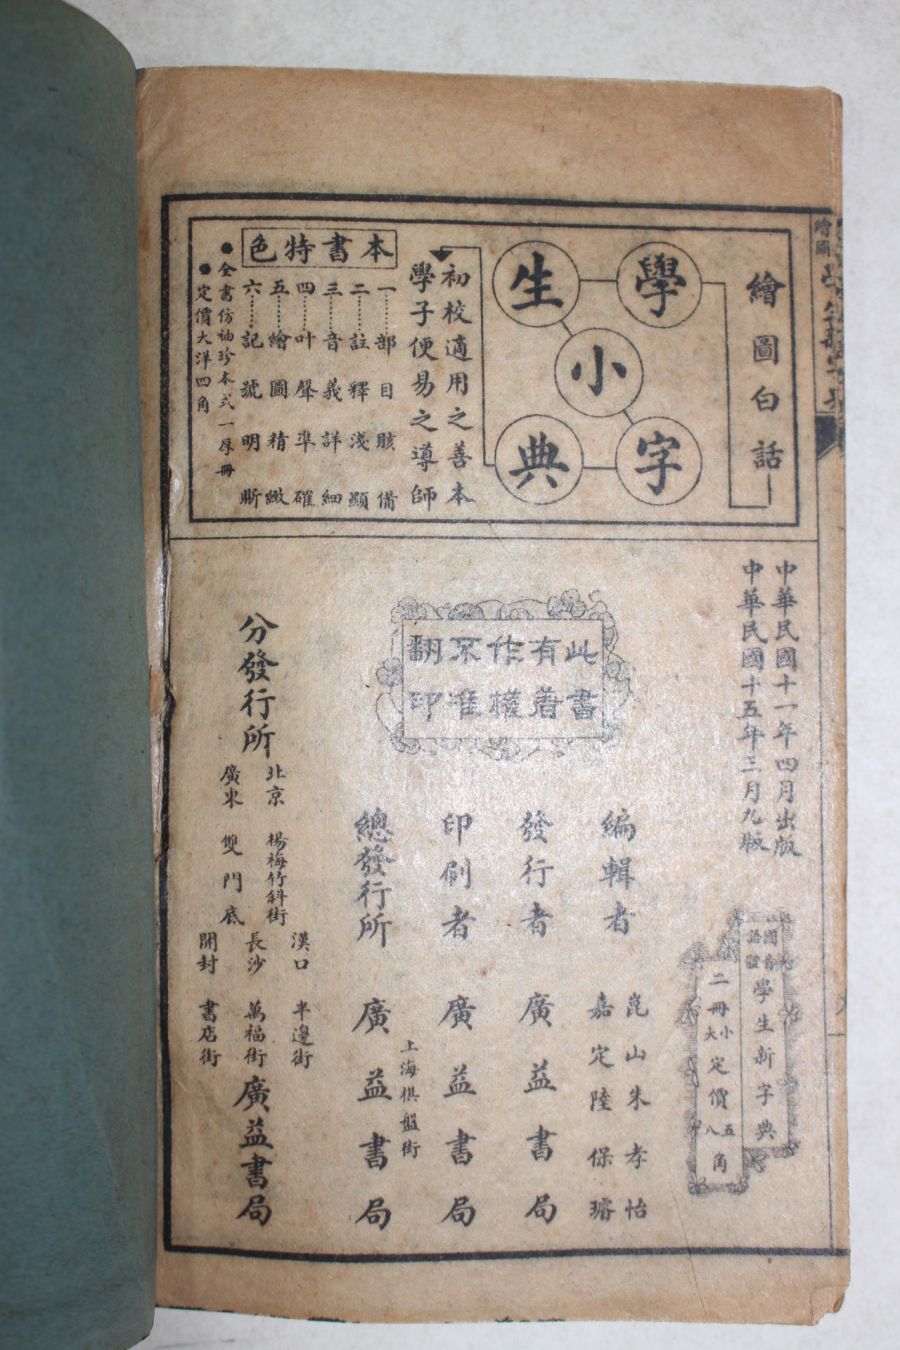 繪圖
繪圖白話
學生
小
字典
初校適用之善本
學子便易之導師
本書特色
一……部目賅備
二……註釋淺顯
三……音義詳細
四……叶聲準確
五……繪圖精緻
六……記號明晰
●全書仿袖珍本式一厚冊
●定價大洋四角
中華民國十一年四月出版
中華民國十五年三月九版
此書
有著
作權
不准
翻印
國音
語體
學生新字典
二冊
小
大
定價
五
八
角
編輯者
崑山朱孝怡
嘉定陸保璿
發行者 廣益書局
印刷者 廣益書局
上海棋盤街
總發行所 廣益書局
分發行所
北京 楊梅竹斜街
廣東 雙門底
漢口 半邊街
長沙 萬福街
開封 書店街
廣益書局